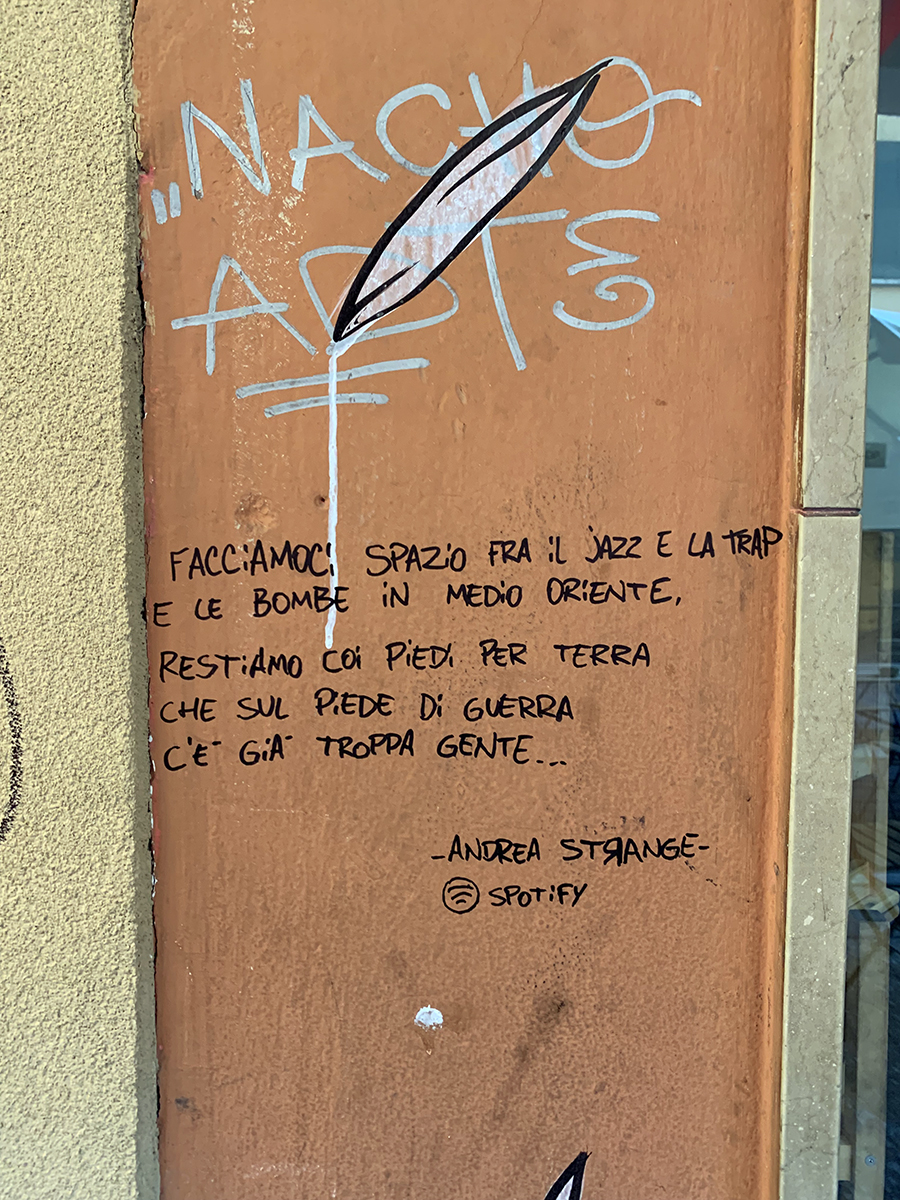 "NACHO
ARTE
FACCiAMOCi SPAZiO FRA iL JAZZ E LA TRAP
E LE BOMBE iN MEDiO ORiENTE,
RESTiAMO COi PiEDi PER TERRA
CHE SUL PiEDE Di GUERRA
C'E' GiA' TROPPA GENTE...
-ANDREA STRANGE-
SPOTiFY